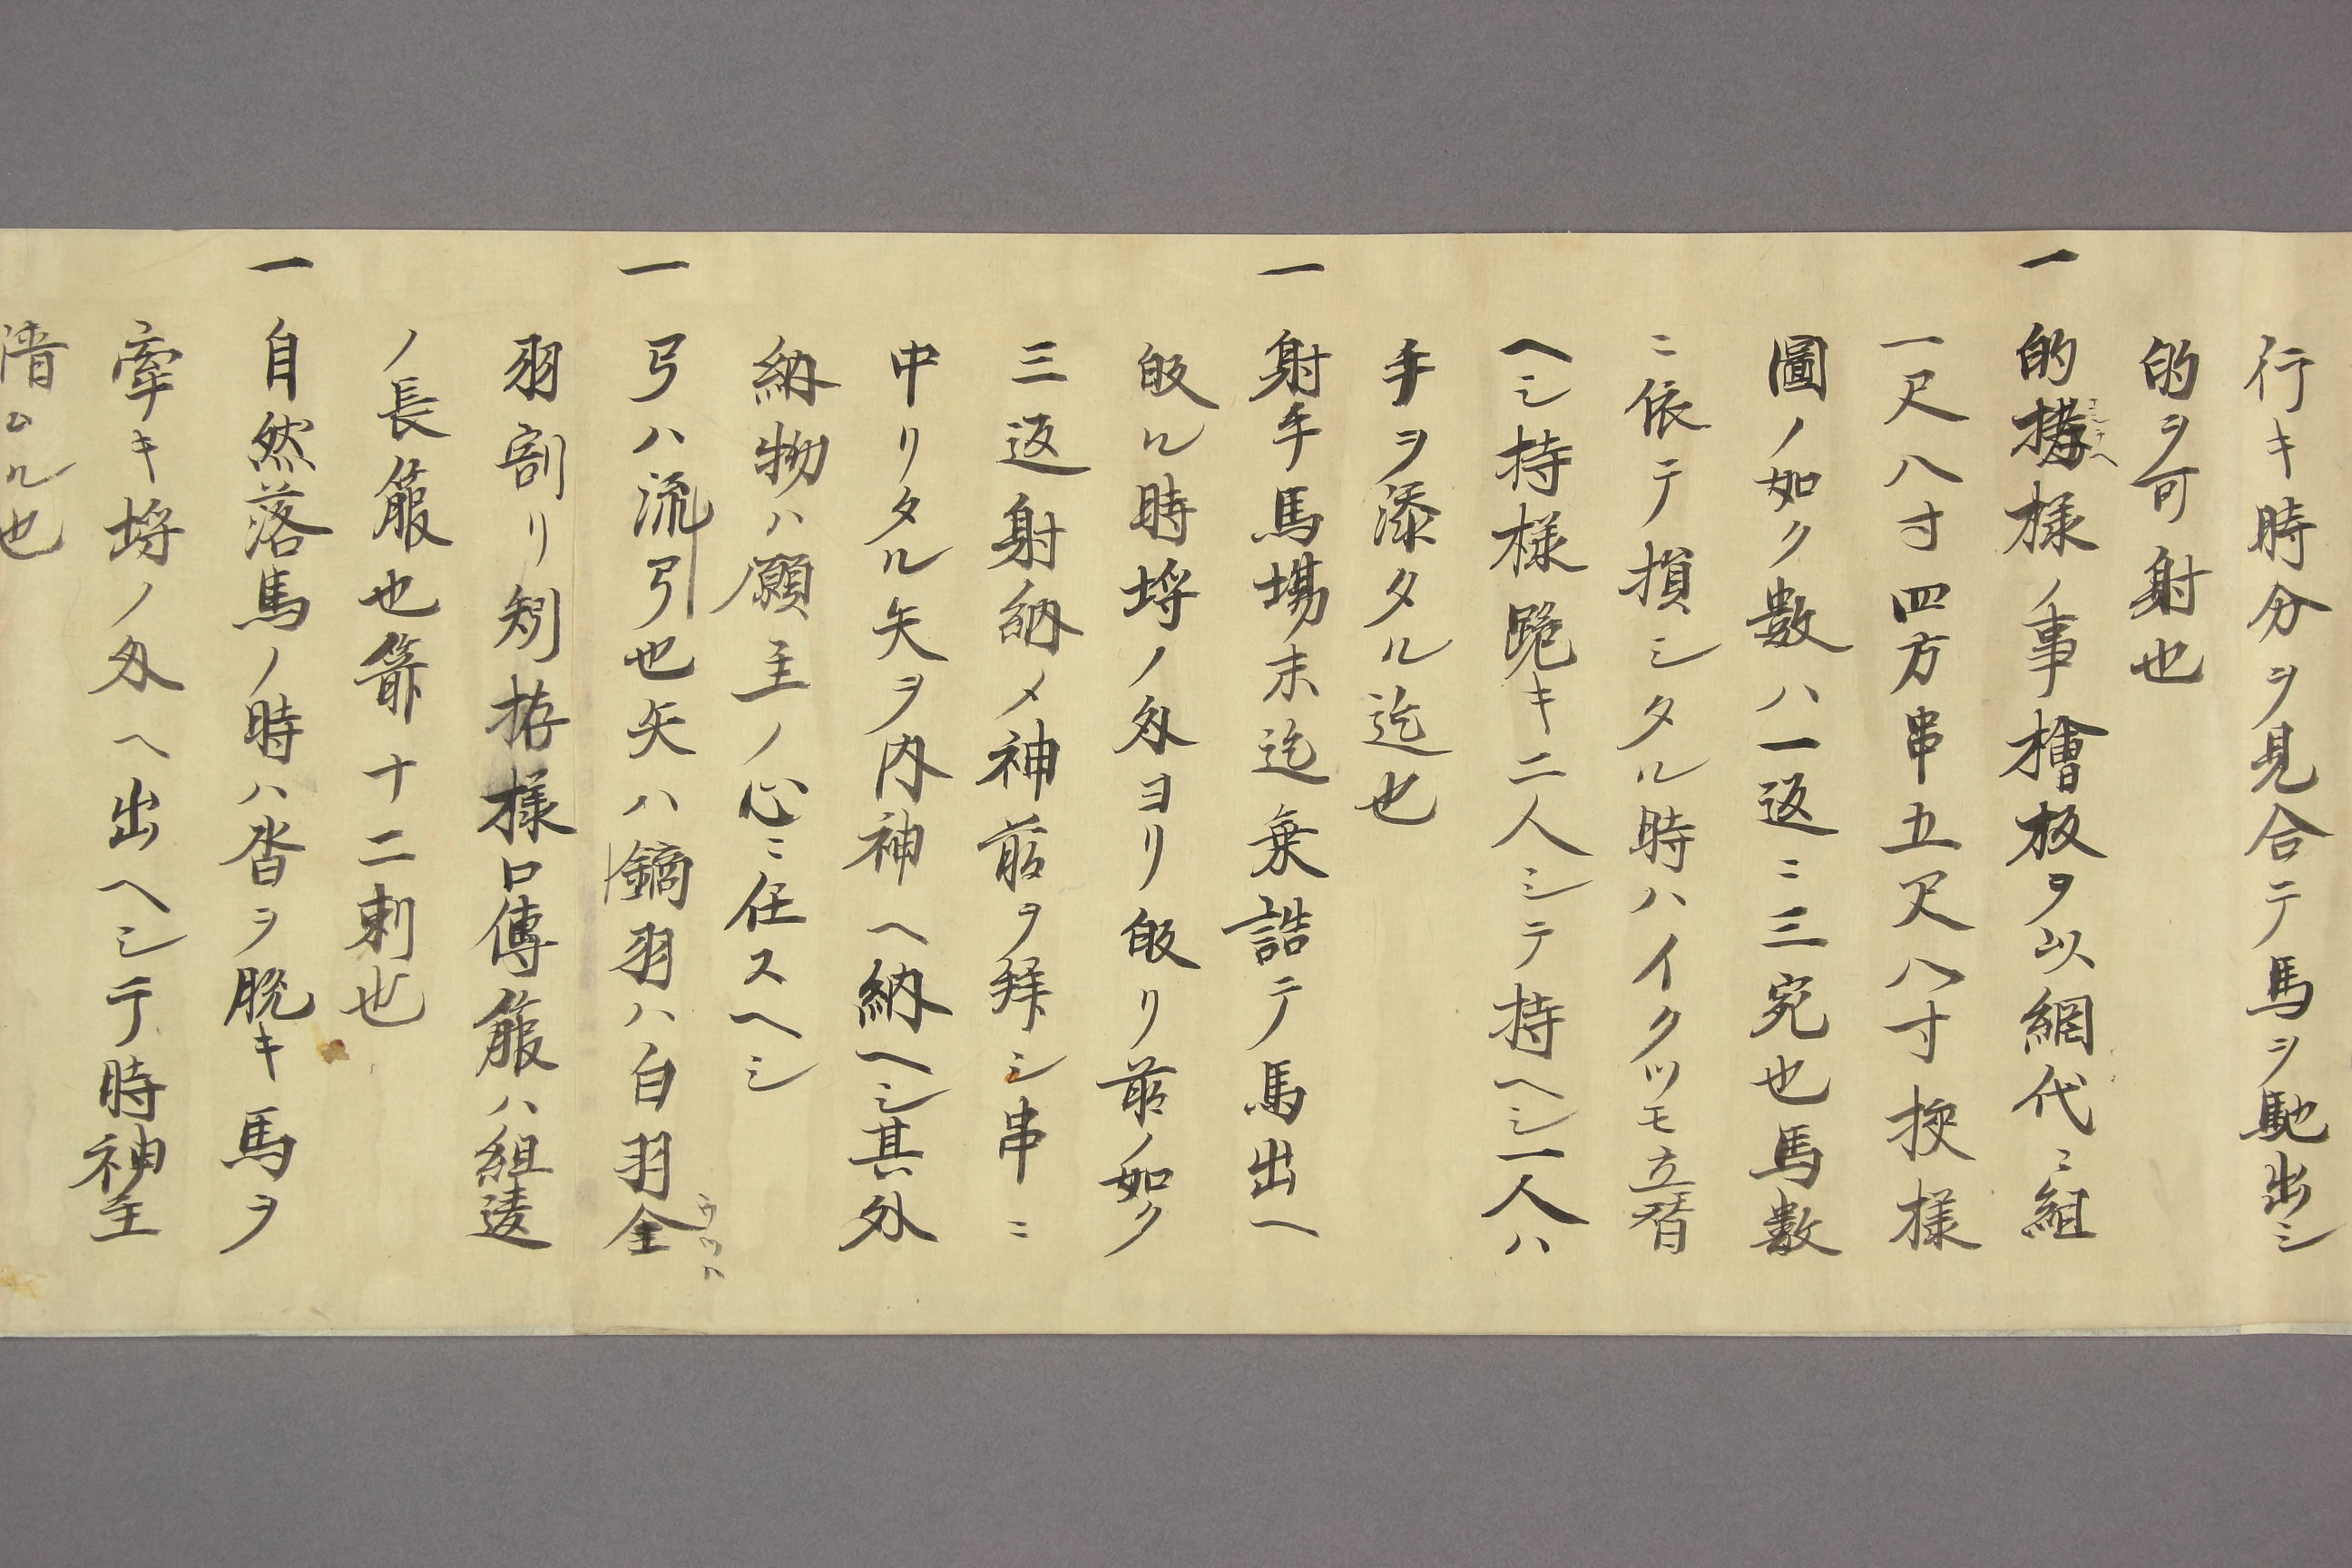 行キ時分ヲ見合テ馬ヲ馳出シ
的ヲ可射也
一 的構様ノ事檜板ヲ以網代ニ組
一尺八寸四方串五尺八寸挾様
圖ノ如ク數ハ一返ニ三宛也馬數
ニ依テ損シタル時ハイクツモ立替
ヘシ持様跪キ二人シテ持ヘシ一人ハ
手ヲ添タル迄也
一 射手馬場末迄乗詰テ馬出ヘ
皈ル時埒ノ外ヨリ皈リ前ノ如ク
三返射納メ神前ヲ拜シ串ニ
中リタル矢ヲ内神ヘ納ヘシ其外
納物ハ願主ノ心ニ任スヘシ
一 弓ハ流弓也矢ハ鏑羽ハ白羽全
羽割リ矧拵様口傳箙ハ組逺
ノ長箙也箭十二刺也
一 自然落馬ノ時ハ沓ヲ脱キ馬ヲ
牽キ埒ノ外ヘ出ヘシテ時神主
ムル也